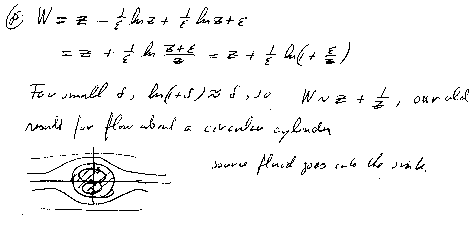 (P) W = z - 1/ε ln z + 1/ε ln z+ε
= z + 1/ε ln (z+ε)/z = z + 1/ε ln(1 + ε/z)
For small δ, ln(1+δ) ≈ δ, so W ~ z + 1/z, our old
result for flow about a circular cylinder
source fluid goes into the sink.